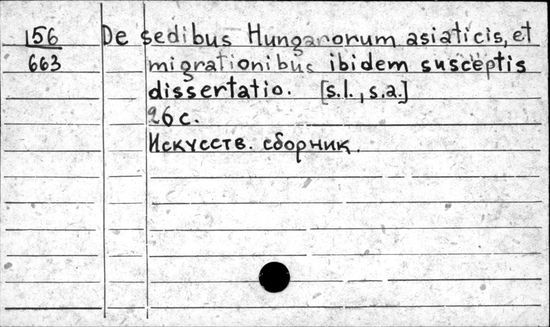 156 De sedibus Hungarorum asiaticis, et
663 migrationibus ibidem susceptis
dissertatio. [s.l., s.a.]
26 с.
Искусств. сборник.